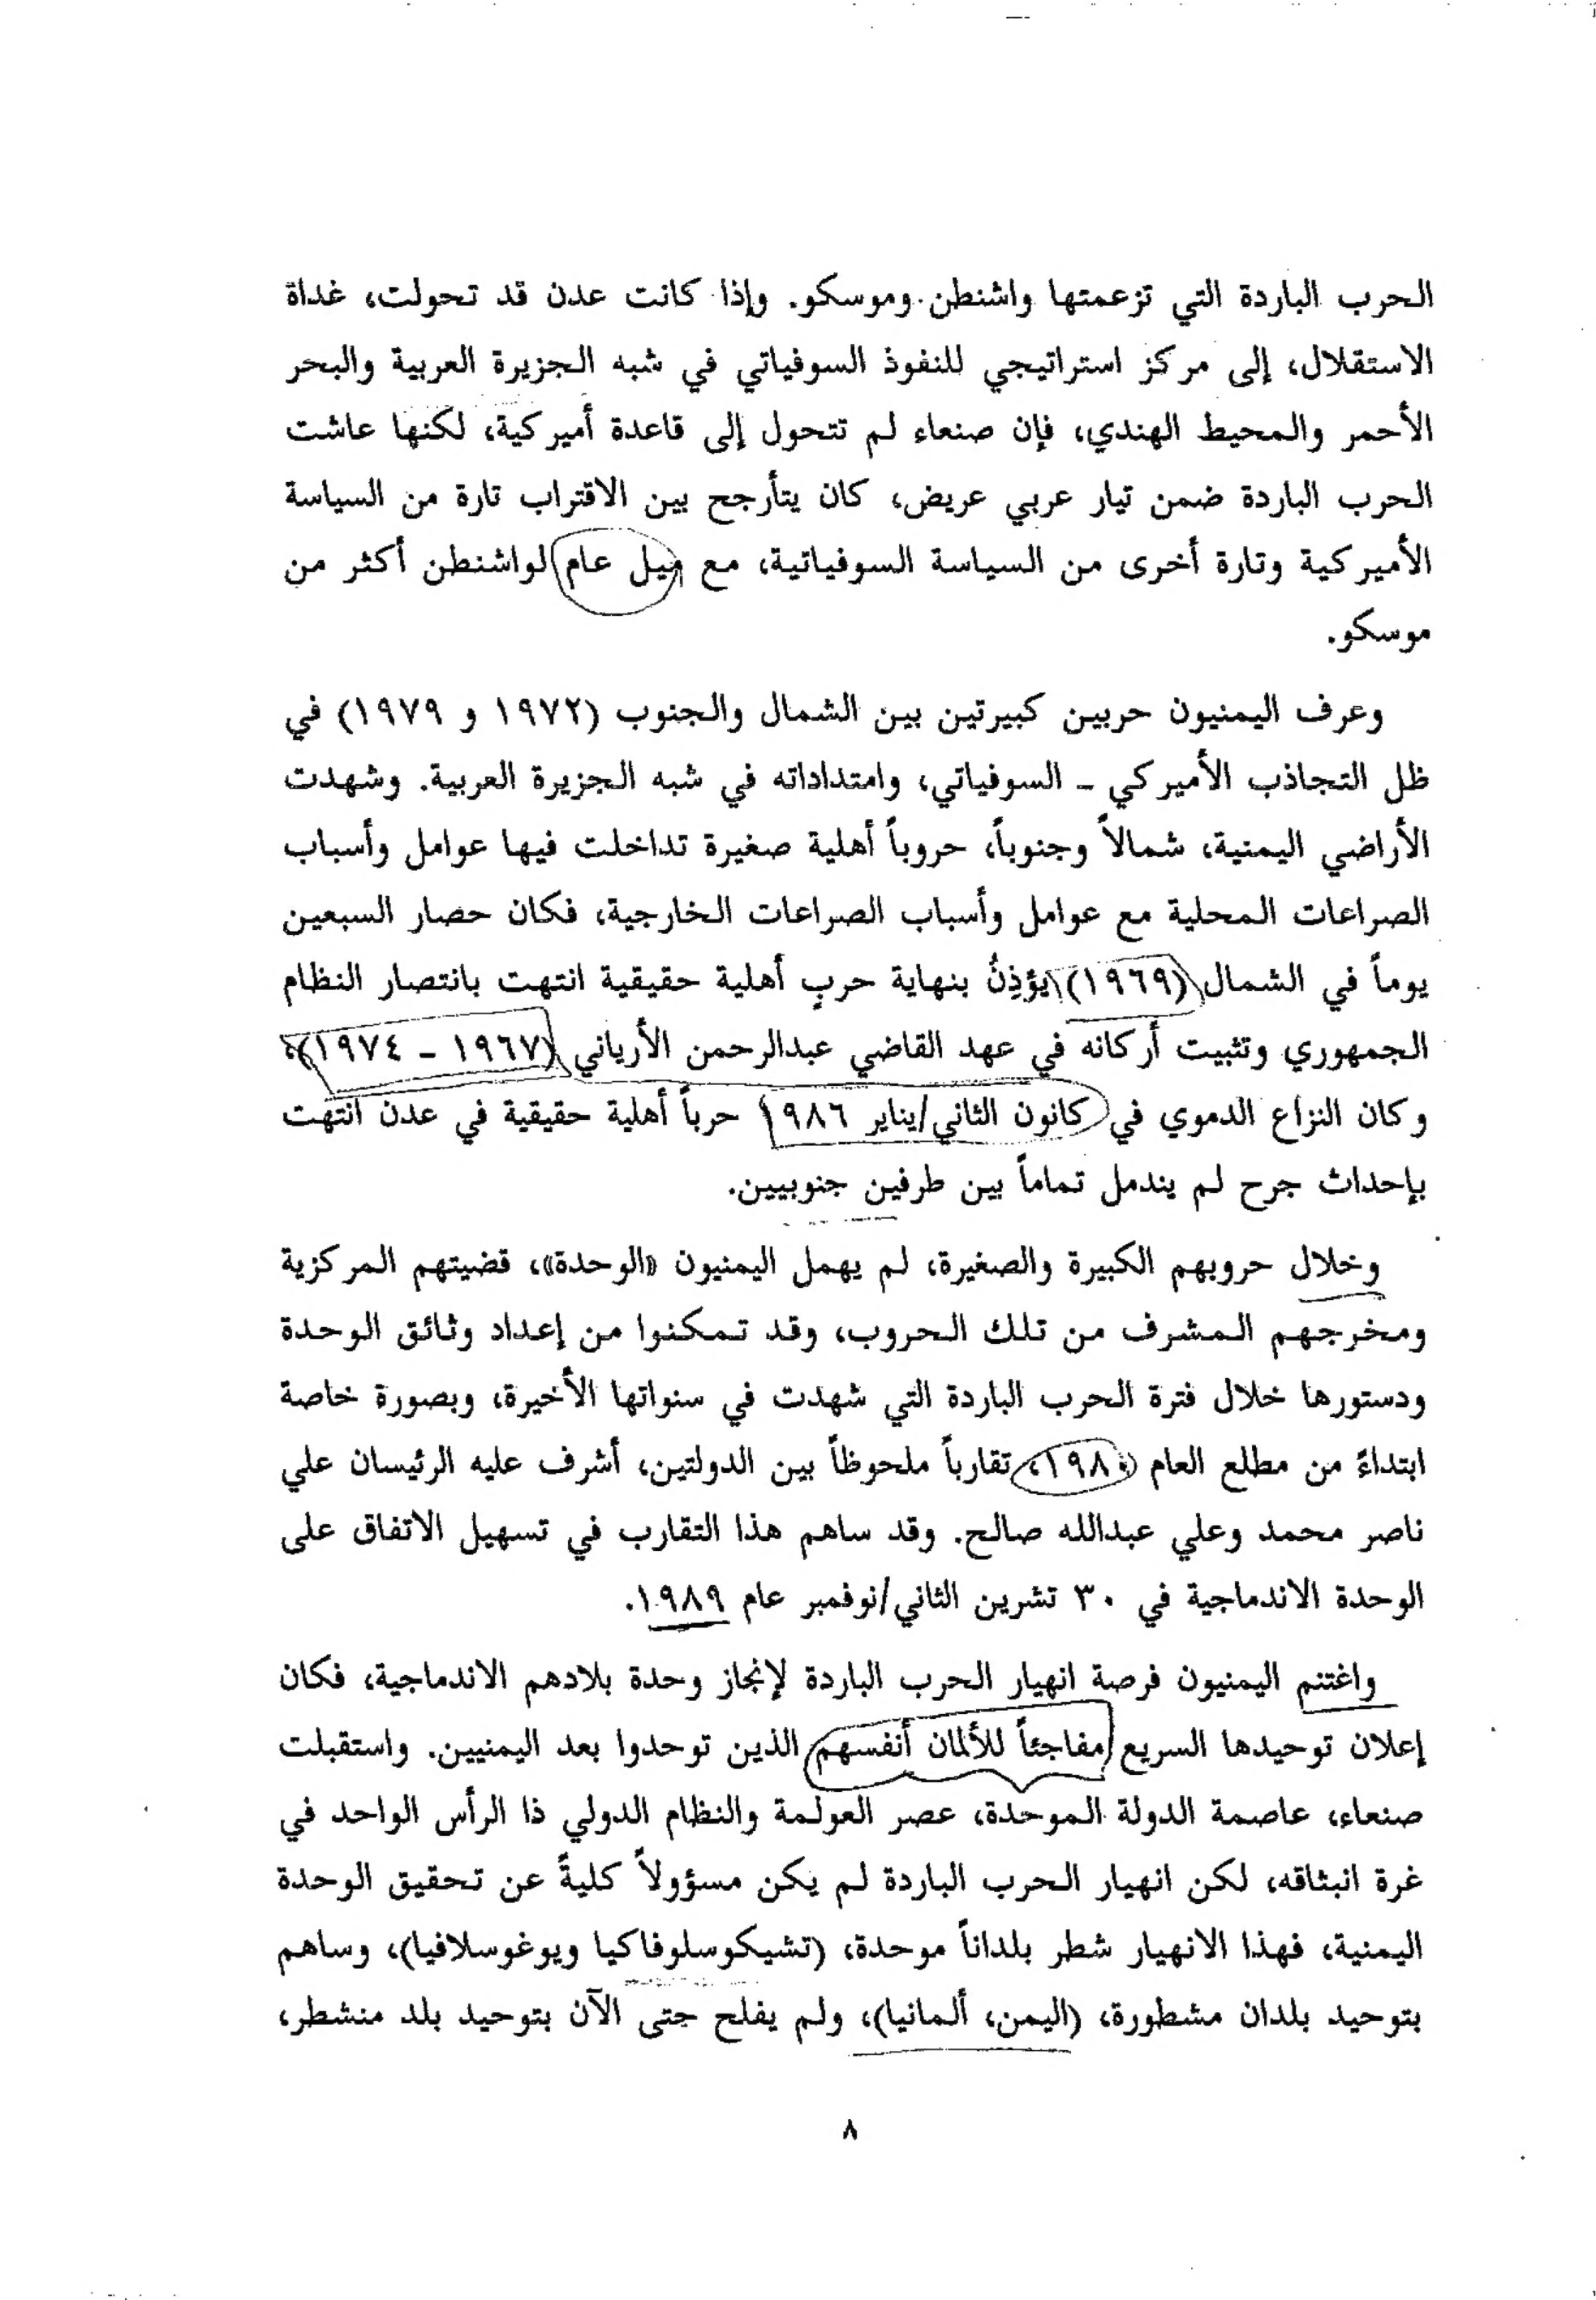 الحرب الباردة التي تزعمتها واشنطن وموسكو. وإذا كانت عدن قد تحولت، غداة
الاستقلال، إلى مركز استراتيجي للنفوذ السوفياتي في شبه الجزيرة العربية والبحر
الأحمر والمحيط الهندي، فإن صنعاء لم تتحول إلى قاعدة أميركية، لكنها عاشت
الحرب الباردة ضمن تيار عربي عريض، كان يتأرجح بين الاقتراب تارة من السياسة
الأميركية وتارة أخرى من السياسة السوفياتية، مع ميل عام لواشنطن أكثر من
موسكو.
وعرف اليمنيون حربين كبيرتين بين الشمال والجنوب (١٩٧٢ و ١٩٧٩) في
ظل التجاذب الأميركي ـ السوفياتي، وامتداداته في شبه الجزيرة العربية. وشهدت
الأراضي اليمنية، شمالاً وجنوباً، حروباً أهلية صغيرة تداخلت فيها عوامل وأسباب
الصراعات المحلية مع عوامل وأسباب الصراعات الخارجية، فكان حصار السبعين
يوماً في الشمال (١٩٦٩) يؤذِنُ بنهاية حربٍ أهلية حقيقية انتهت بانتصار النظام
الجمهوري وتثبيت أركانه في عهد القاضي عبدالرحمن الأرياني (١٩٦٧ ـ ١٩٧٤)،
وكان النزاع الدموي في كانون الثاني/يناير ١٩٨٦ حرباً أهلية حقيقية في عدن انتهت
بإحداث جرح لم يندمل تماماً بين طرفين جنوبيين.
وخلال حروبهم الكبيرة والصغيرة، لم يهمل اليمنيون «الوحدة»، قضيتهم المركزية
ومخرجهم المشرف من تلك الحروب، وقد تمكنوا من إعداد وثائق الوحدة
ودستورها خلال فترة الحرب الباردة التي شهدت في سنواتها الأخيرة، وبصورة خاصة
ابتداءً من مطلع العام ١٩٨٠، تقارباً ملحوظاً بين الدولتين، أشرف عليه الرئيسان علي
ناصر محمد وعلي عبدالله صالح. وقد ساهم هذا التقارب في تسهيل الاتفاق على
الوحدة الاندماجية في ٣٠ تشرين الثاني/نوفمبر عام ١٩٨٩.
واغتنم اليمنيون فرصة انهيار الحرب الباردة لإنجاز وحدة بلادهم الاندماجية، فكان
إعلان توحيدها السريع مفاجئاً للألمان أنفسهم الذين توحدوا بعد اليمنيين. واستقبلت
صنعاء، عاصمة الدولة الموحدة، عصر العولمة والنظام الدولي ذا الرأس الواحد في
غرة انبثاقه، لكن انهيار الحرب الباردة لم يكن مسؤولاً كليةً عن تحقيق الوحدة
اليمنية، فهذا الانهيار شطر بلداناً موحدة، (تشيكوسلوفاكيا ويوغوسلافيا)، وساهم
بتوحيد بلدان مشطورة، (اليمن، ألمانيا)، ولم يفلح حتى الآن بتوحيد بلد منشطر،
٨